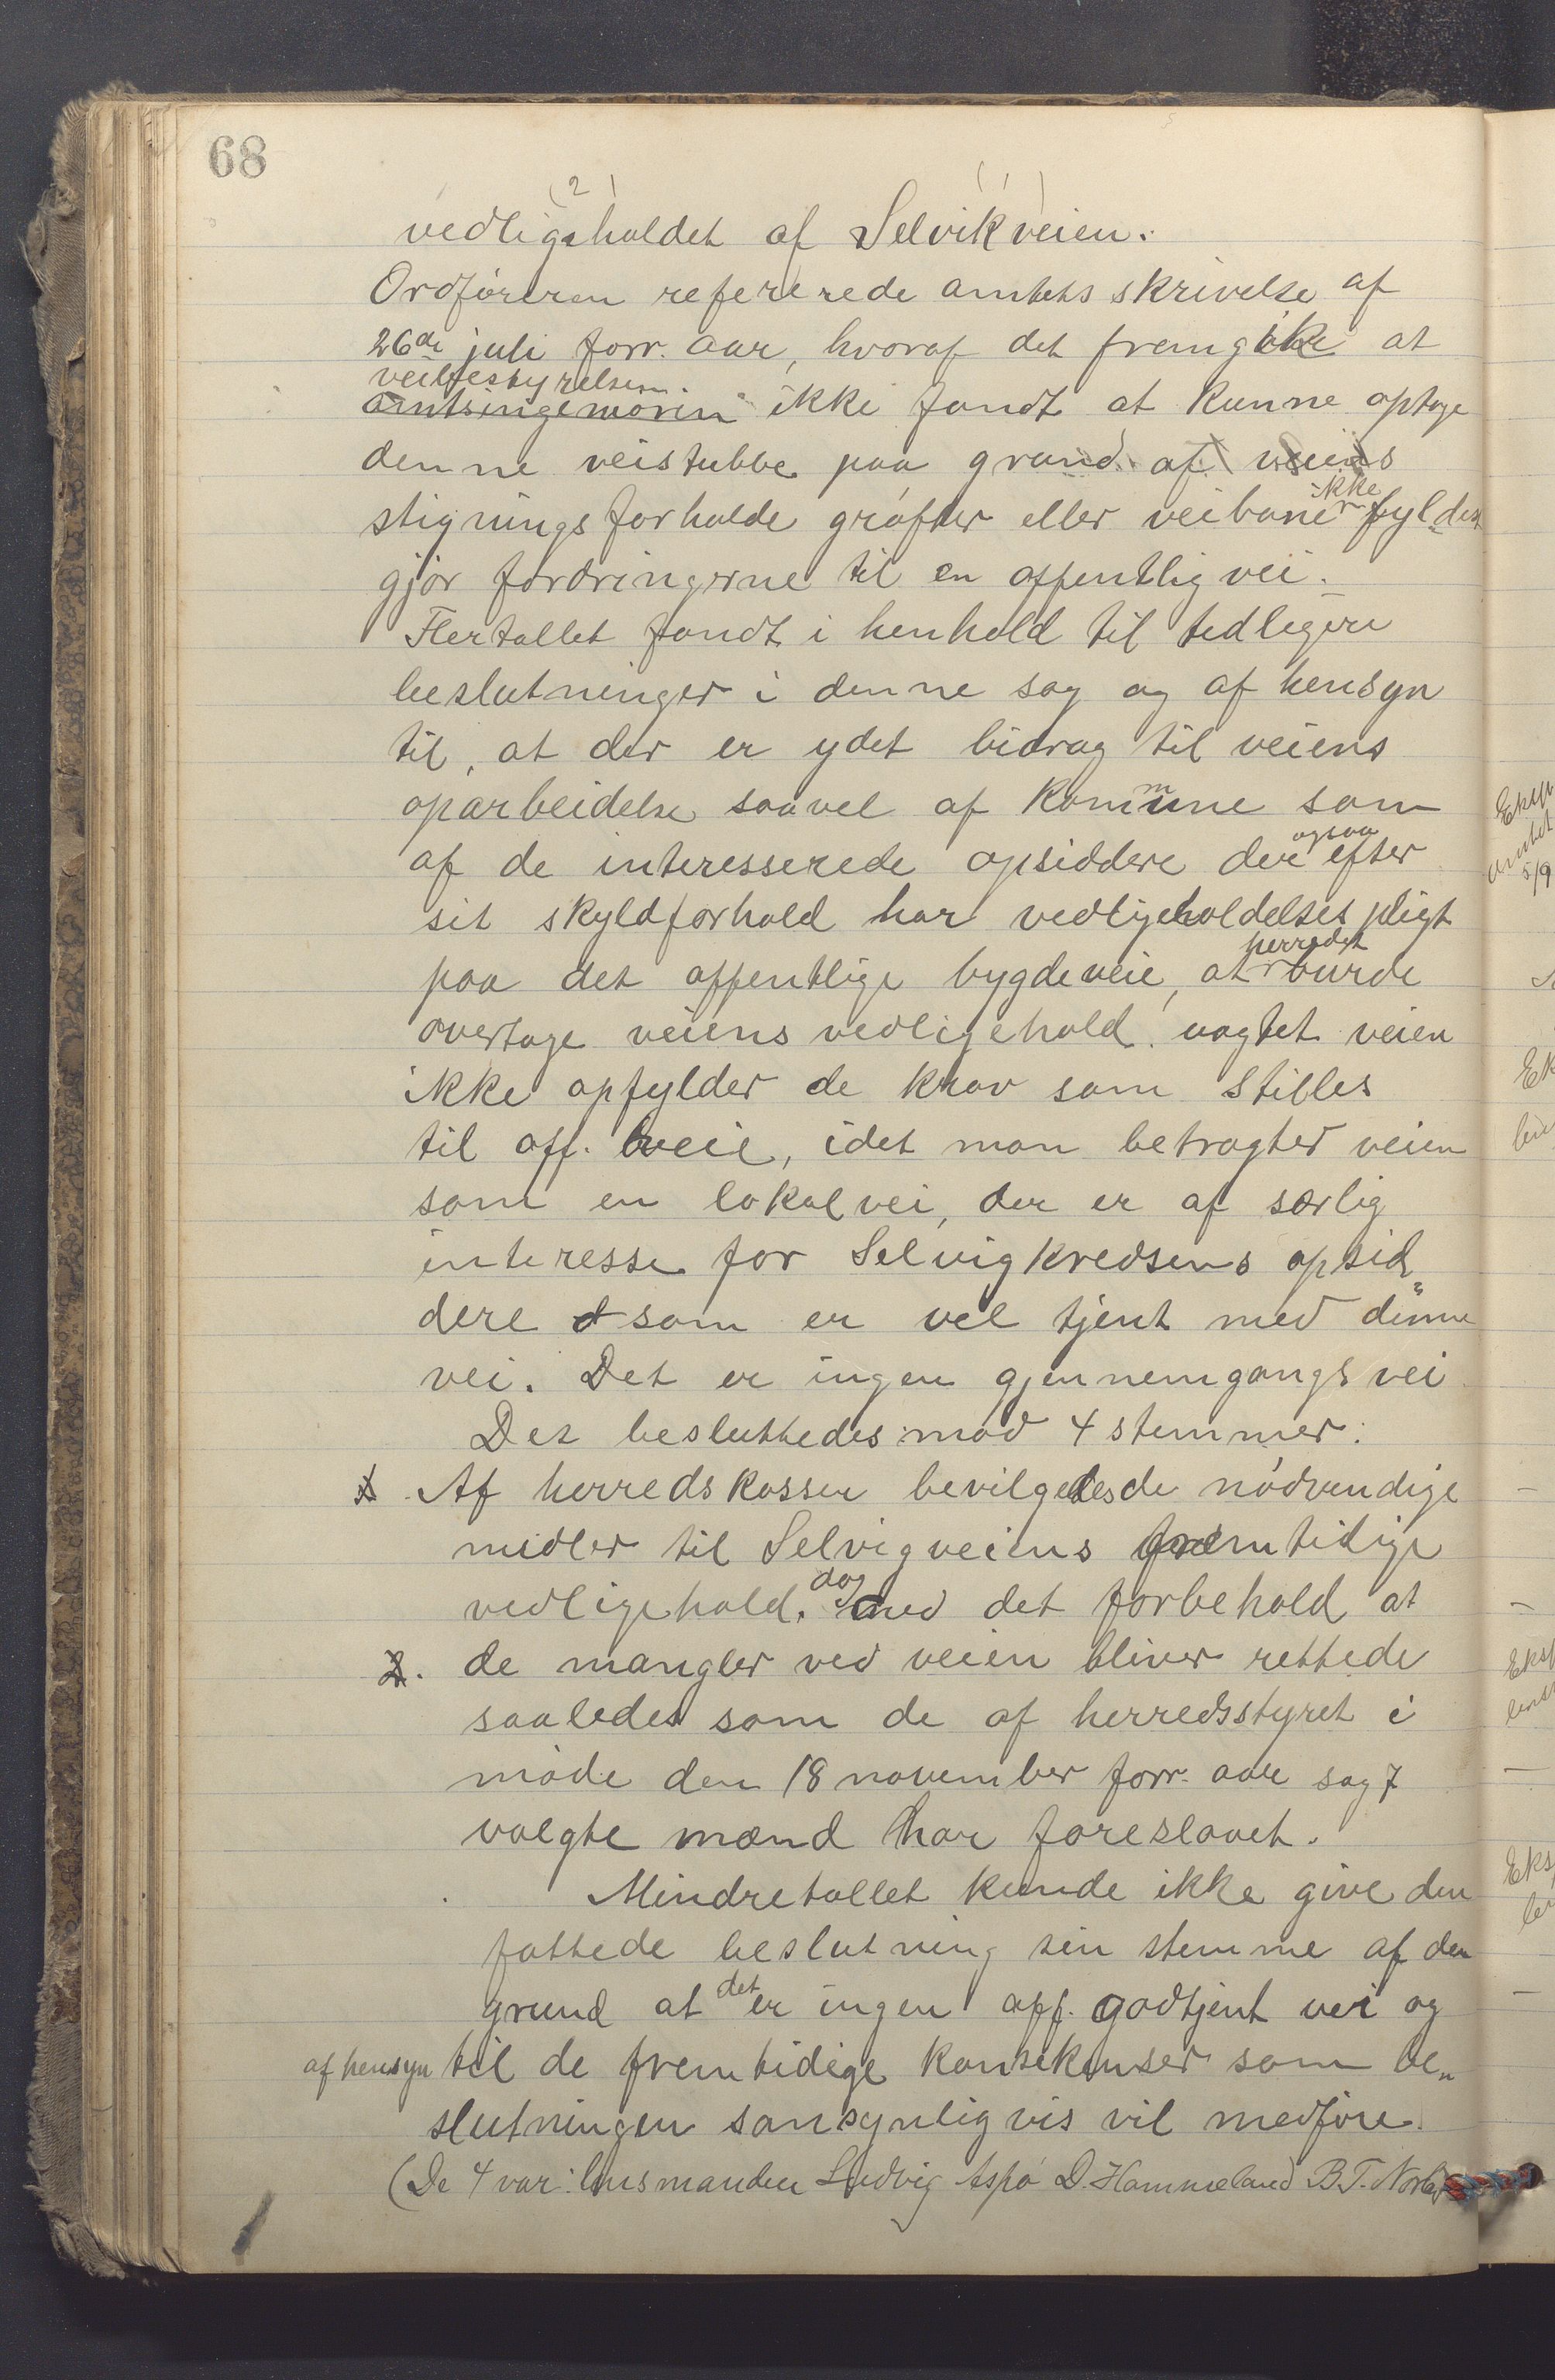 68
(2) (1)
vedligeholdet af Selvikveien.
Ordføreren refererede amtets skrivelse af
26de juli forr. aar, hvoraf det fremgik at
veibestyrelsen
amtsingeniøren ikke fandt at kunne optage
denne veistubbe paa grund af veiens
ikke
stigningsforholde grøfter eller veibane fyldest
gjør fordringerne til en offentlig vei.
Flertallet fandt i henhold til tedligere
beslutninger i denne sag og af hensyn
til, at der er ydet bidrag til veiens
oparbeidelse saavel af kommune som
ogsaa
af de interesserede opsiddere der efter
sit skyldforhold har vedligeholdelsespligt
herredet
paa det offentlige bygdeveie, at burde
overtage veiens vedligehold uagtet veien
ikke opfylder de krav som stilles
til off. veie, idet man betragter veien
som en lokalvei, der er af særlig
interesse for Selvigkredsens opsid„
dere som er vel tjent med denne
vei. Det er ingen gjennemgangsvei
Det besluttedes mod 4 stemmer:
1. Af herredskassen bevilgedes de nødvendige
midler til Selvigveiens fremtidige
dog
vedligehold. med det forbehold at
2. de mangler ved veien bliver rettede
saaledes som de af herredsstyret i
møde den 18 november forr. aar sag 7
valgte mænd har foreslaaet.
Mindretallet kunde ikke give den
fattede beslutning sin stemme af den
det
grund at er ingen off. godtjent vei og
af hensyn til de fremtidige konsekvenser som be„
slutningen sansynligvis vil medføre.
(De 4 var: lensmanden Ludvig Aspø D. Hammeland B.T.